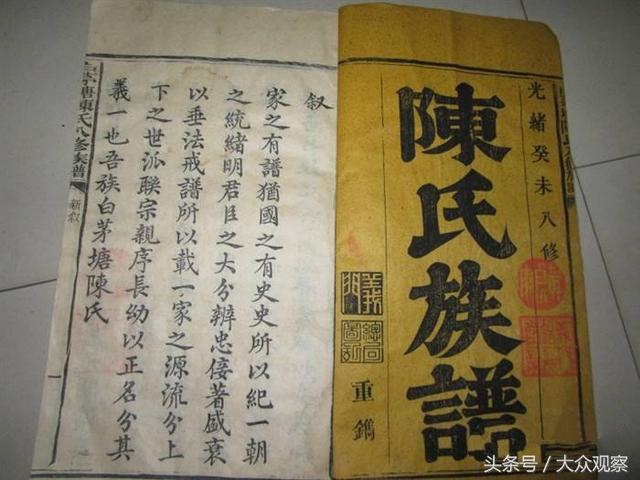 光緒癸未八修
陳氏族譜
重鐫
叙
家之有譜猶國之有史史所以紀一朝
之統緒明君臣之大分辨忠佞著盛衰
以垂法戒譜所以載一家之源流分上
下之世派聯宗親序長幼以正名分其
義一也吾族白茅塘陳氏
白茅塘陳氏八修族譜
新叙
一
头条号/大众观察